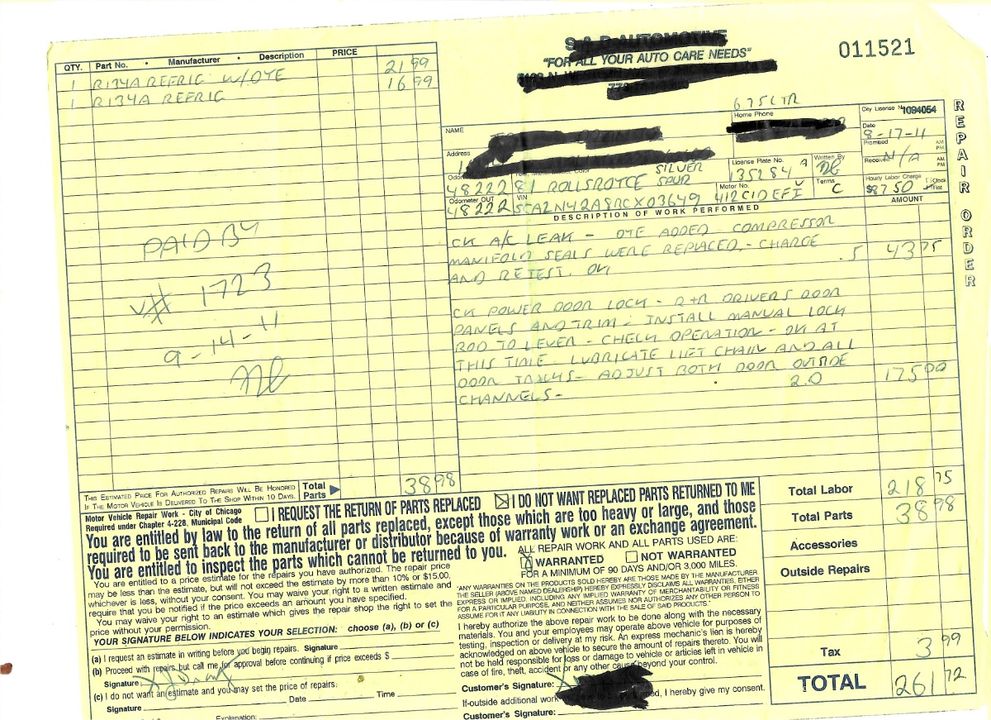 QTY. Part No. • Manufacturer • Description PRICE
1 R134A REFRIG W/DYE 21 99
1 R134A REFRIG 16 99
PAID BY
V# 1723
9-14-11
THIS ESTIMATED PRICE FOR AUTHORIZED REPAIRS WILL BE HONORED
IF THE MOTOR VEHICLE IS DELIVERED TO THE SHOP WITHIN 10 DAYS.
Total Parts 38 98
S A D AUTOMOTIVE
"FOR ALL YOUR AUTO CARE NEEDS"
011521
REPAIR ORDER
675 CTR
NAME
Home Phone
City License No. 1094054
Date
8-17-11
Promised AM PM
Address
License Plate No.
135284 A
Written By
Recd. N/A AM PM
SILVER
48222 81 ROLLSROYCE SPUR
Motor No.
412CIDEFI
Terms
C
Hourly Labor Charge
$87 50
Clock
Flat
Odometer OUT
48222
VIN
SCAZN42A8RCX03649
DESCRIPTION OF WORK PERFORMED
AMOUNT
CK A/C LEAK - DYE ADDED COMPRESSOR
MANIFOLD SEALS WERE REPLACED - CHARGE .5 43 75
AND RETEST. OK
CK POWER DOOR LOCK - R+R DRIVERS DOOR
PANELS AND TRIM - INSTALL MANUAL LOCK
ROD TO LEVER - CHECK OPERATION - OK AT
THIS TIME - LUBRICATE LIFT CHAIN AND ALL
DOOR TRACKS - ADJUST BOTH DOOR OUTSIDE
CHANNELS - 2.0 175 00
Motor Vehicle Repair Work - City of Chicago
Required under Chapter 4-228, Municipal Code
I REQUEST THE RETURN OF PARTS REPLACED
I DO NOT WANT REPLACED PARTS RETURNED TO ME
You are entitled by law to the return of all parts replaced, except those which are too heavy or large, and those
required to be sent back to the manufacturer or distributor because of warranty work or an exchange agreement.
You are entitled to inspect the parts which cannot be returned to you.
You are entitled to a price estimate for the repairs you have authorized. The repair price
may be less than the estimate, but will not exceed the estimate by more than 10% or $15.00,
whichever is less, without your consent. You may waive your right to a written estimate and
require that you be notified if the price exceeds an amount you have specified.
You may waive your right to an estimate which gives the repair shop the right to set the
price without your permission.
YOUR SIGNATURE BELOW INDICATES YOUR SELECTION: choose (a), (b) or (c)
(a) I request an estimate in writing before you begin repairs. Signature
(b) Proceed with repairs but call me for approval before continuing if price exceeds $
Signature
(c) I do not want an estimate and you may set the price of repairs:
Signature Date Time
Explanation:
ALL REPAIR WORK AND ALL PARTS USED ARE:
WARRANTED NOT WARRANTED
FOR A MINIMUM OF 90 DAYS AND/OR 3,000 MILES.
"ANY WARRANTIES ON THE PRODUCTS SOLD HEREBY ARE THOSE MADE BY THE MANUFACTURER.
THE SELLER (ABOVE NAMED DEALERSHIP) HEREBY EXPRESSLY DISCLAIMS ALL WARRANTIES, EITHER
EXPRESS OR IMPLIED, INCLUDING ANY IMPLIED WARRANTY OF MERCHANTABILITY OR FITNESS
FOR A PARTICULAR PURPOSE, AND NEITHER ASSUMES NOR AUTHORIZES ANY OTHER PERSON TO
ASSUME FOR IT ANY LIABILITY IN CONNECTION WITH THE SALE OF SAID PRODUCTS."
I hereby authorize the above repair work to be done along with the necessary
materials. You and your employees may operate above vehicle for purposes of
testing, inspection or delivery at my risk. An express mechanic's lien is hereby
acknowledged on above vehicle to secure the amount of repairs thereto. You will
not be held responsible for loss or damage to vehicle or articles left in vehicle in
case of fire, theft, accident or any other cause beyond your control.
Customer's Signature:
If outside additional work I hereby give my consent.
Customer's Signature:
Total Labor 218 75
Total Parts 38 98
Accessories
Outside Repairs
Tax 3 99
TOTAL 261 72